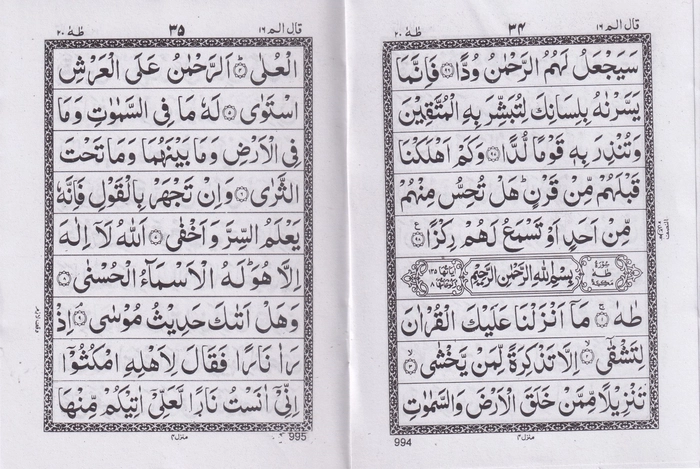 قال الم ١٦
٣٤
طٰهٰ ٢٠
سَيَجْعَلُ لَهُمُ الرَّحْمٰنُ وُدًّا ﴿٩٦﴾ فَاِنَّمَا
يَسَّرْنٰهُ بِلِسَانِكَ لِتُبَشِّرَ بِهِ الْمُتَّقِيْنَ
وَتُنْذِرَ بِهٖ قَوْمًا لُّدًّا ﴿٩٧﴾ وَكَمْ اَهْلَكْنَا
قَبْلَهُمْ مِّنْ قَرْنٍ ؕ هَلْ تُحِسُّ مِنْهُمْ
مِّنْ اَحَدٍ اَوْ تَسْمَعُ لَهُمْ رِكْزًا ﴿٩٨﴾
سُوْرَةُ طٰهٰ مَكِّيَّةٌ
بِسْمِ اللّٰهِ الرَّحْمٰنِ الرَّحِيْمِ
اٰيَاتُهَا ١٣٥ رُكُوْعَاتُهَا ٨
طٰهٰ ﴿١﴾ مَاۤ اَنْزَلْنَا عَلَيْكَ الْقُرْاٰنَ
لِتَشْقٰٓى ﴿٢﴾ اِلَّا تَذْكِرَةً لِّمَنْ يَّخْشٰى ﴿٣﴾
تَنْزِيْلًا مِّمَّنْ خَلَقَ الْاَرْضَ وَالسَّمٰوٰتِ
منزل ٤
994
قال الم ١٦
٣٥
طٰهٰ ٢٠
الْعُلٰى ﴿٤﴾ اَلرَّحْمٰنُ عَلَى الْعَرْشِ
اسْتَوٰى ﴿٥﴾ لَهٗ مَا فِى السَّمٰوٰتِ وَمَا
فِى الْاَرْضِ وَمَا بَيْنَهُمَا وَمَا تَحْتَ
الثَّرٰى ﴿٦﴾ وَاِنْ تَجْهَرْ بِالْقَوْلِ فَاِنَّهٗ
يَعْلَمُ السِّرَّ وَاَخْفٰى ﴿٧﴾ اَللّٰهُ لَاۤ اِلٰهَ
اِلَّا هُوَ ؕ لَهُ الْاَسْمَآءُ الْحُسْنٰى ﴿٨﴾
وَهَلْ اَتٰىكَ حَدِيْثُ مُوْسٰى ﴿٩﴾ اِذْ
رَاٰ نَارًا فَقَالَ لِاَهْلِهِ امْكُثُوْۤا
اِنِّىْۤ اٰنَسْتُ نَارًا لَّعَلِّىْۤ اٰتِيْكُمْ مِّنْهَا
منزل ٤
995